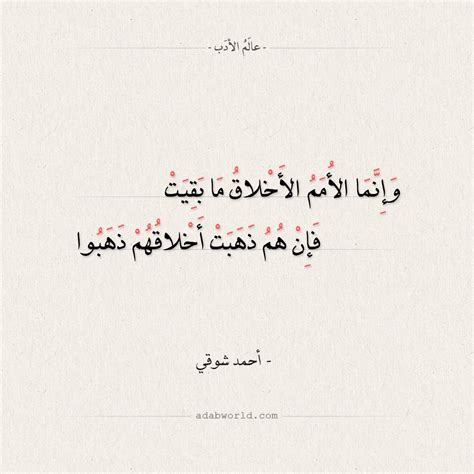 - عالَمُ الأدَب -
وَإِنَّمَا الأُمَمُ الأَخْلاقُ مَا بَقِيَتْ
فَإِنْ هُمُ ذَهَبَتْ أَخْلاقُهُمْ ذَهَبُوا
- أحمد شوقي
adabworld.com